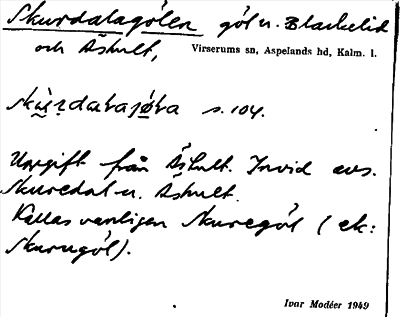 Skurdalagölen göl u. Blackelid
och Åshult, Virserums sn, Aspelands hd, Kalm. l.
s. 104.
Uppgift från Åshult. Invid avs.
Skuredal u. Åshult.
Kallas vanligen Skuregöl ( ek:
Skurugöl).
Ivar Modéer 1949